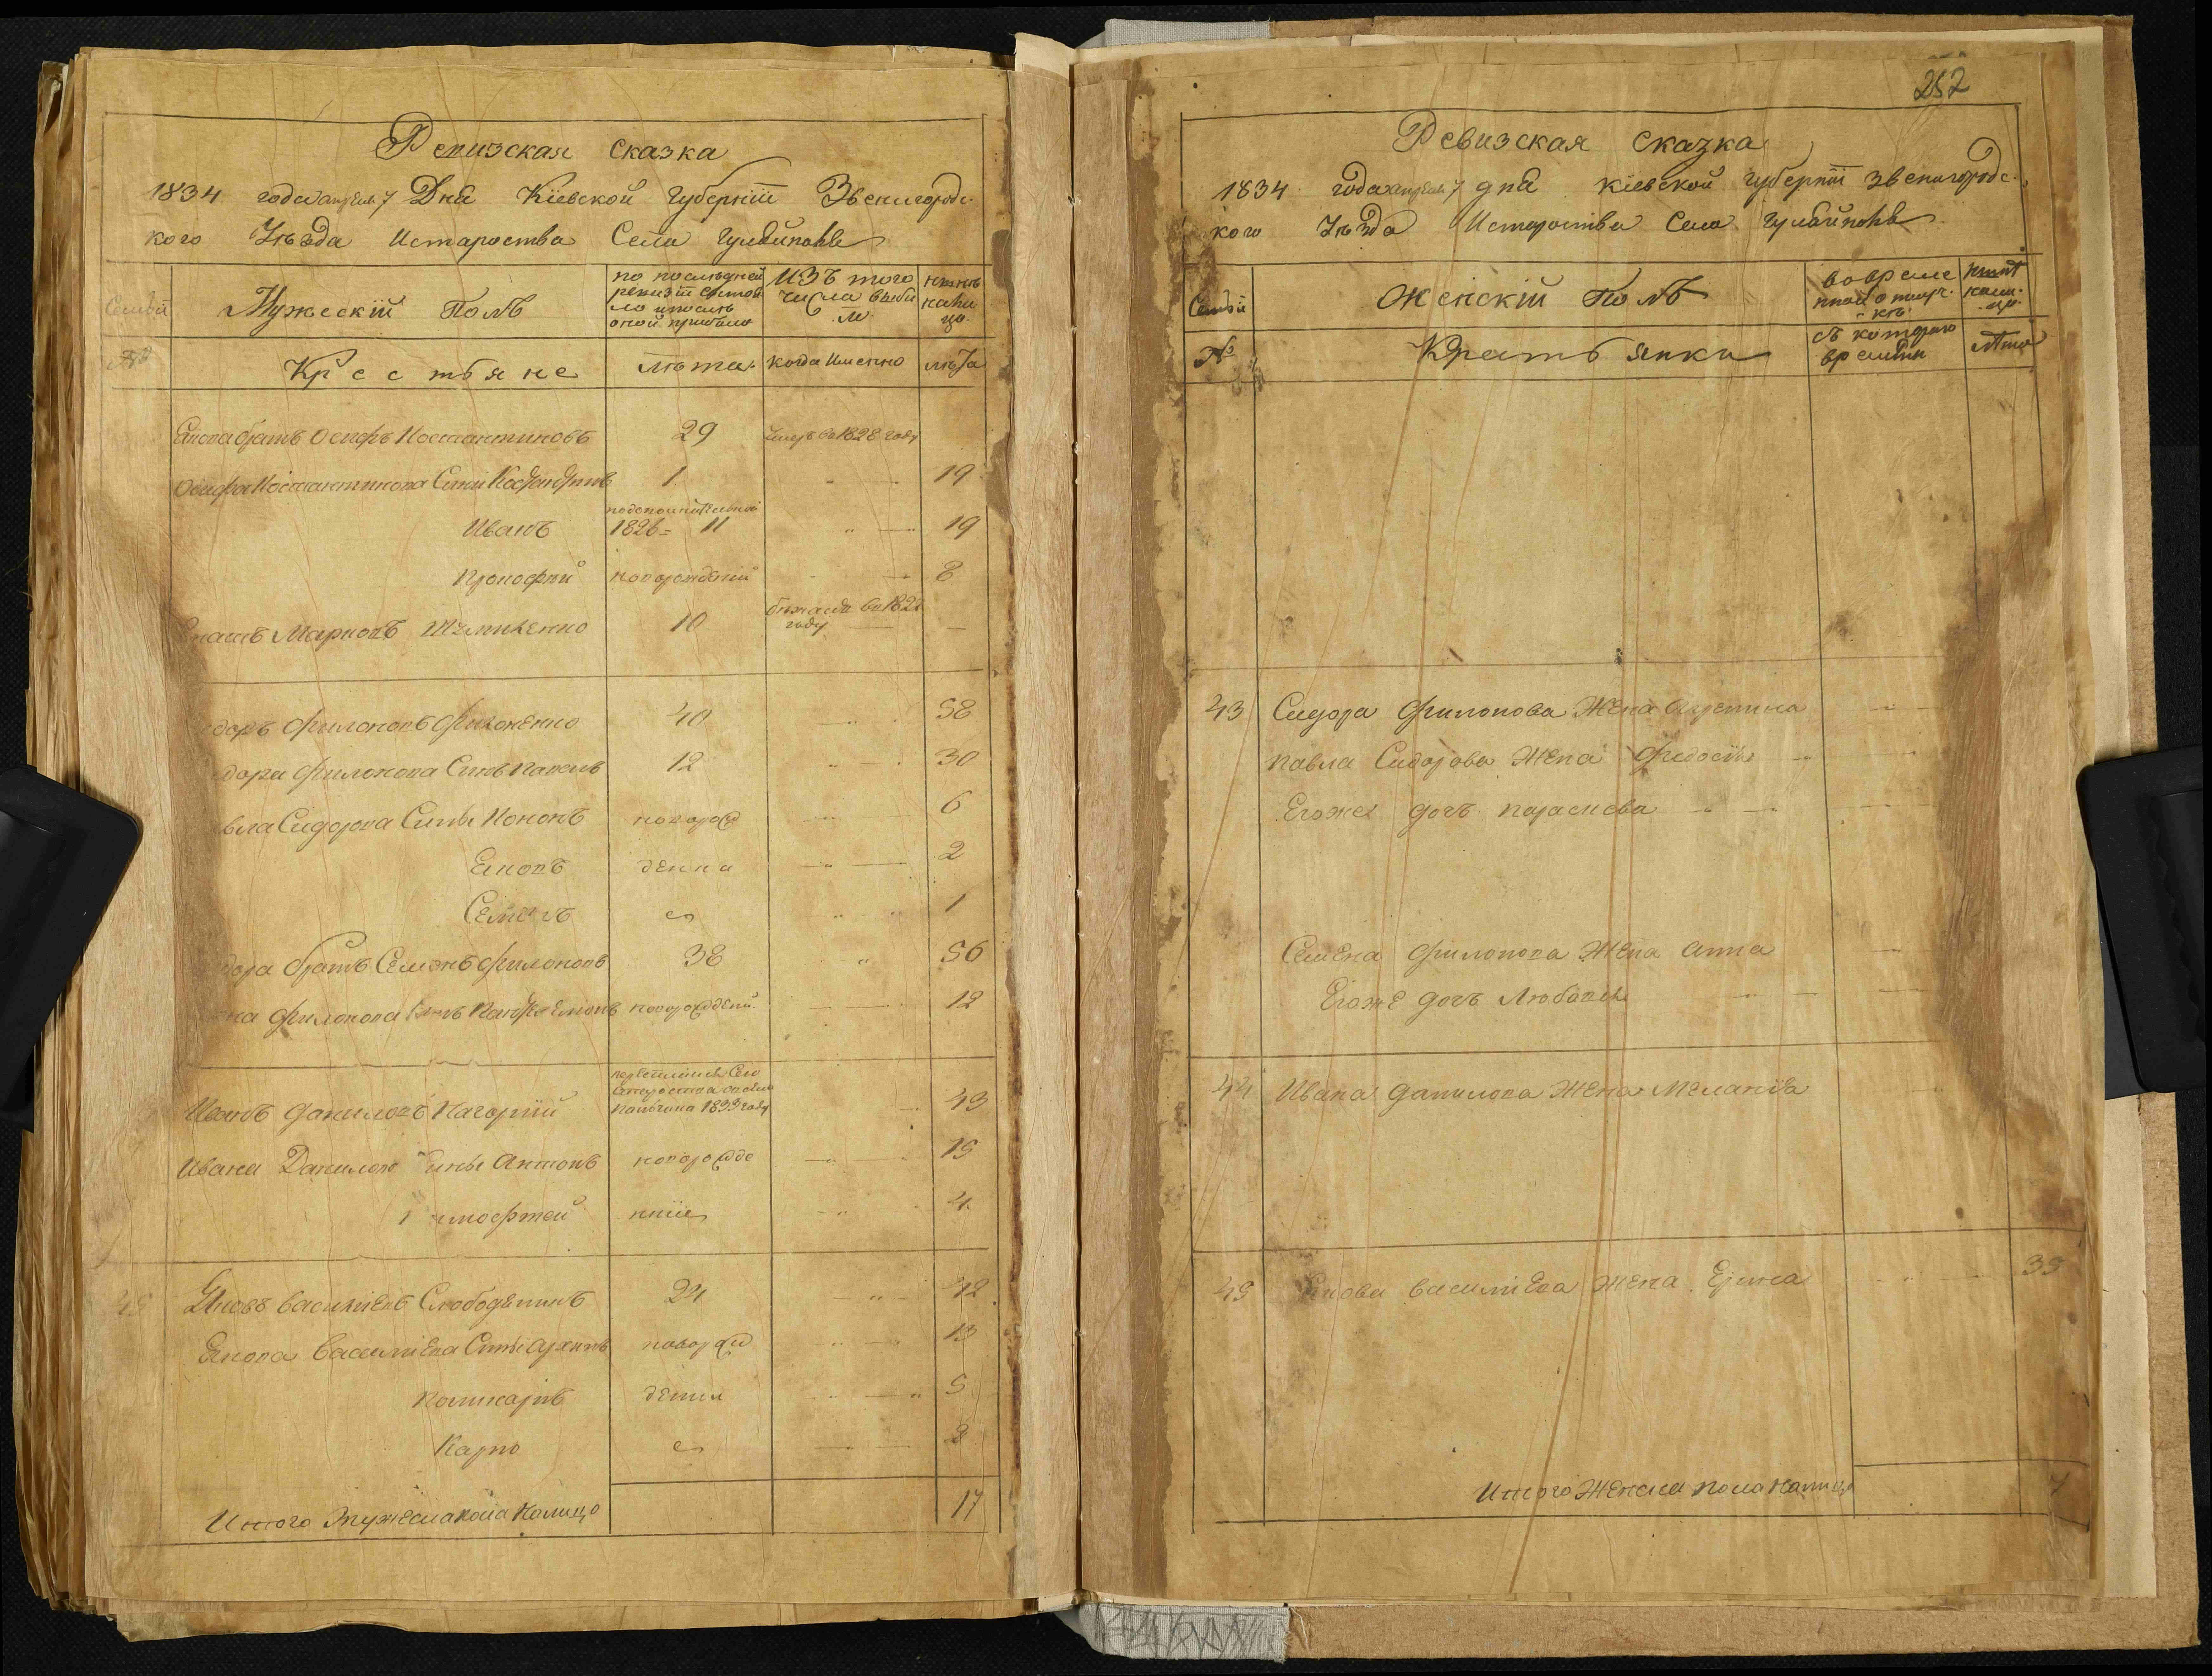 Ревизская Сказка
1834 года апреля 7 Дня Кіевской Губерніи Звенигородс-
кого Уѣзда Истароства Села Гулайполѣ
Семьи
Мужескій Полъ
по последней ревизіи состоя ло и после оной прибыло
Изъ того числа выбы ло
нынѣ на ли цо
№
Крестьяне
лѣта
когда Именно
лѣта
братъ Осифъ Костантиновъ 29 Умеръ въ 1828 году
Осифа Костантинова Сыни 1 19
Иванъ 1826 = 11 19
Прокофий новорожденій 8
Марковъ 10 бежалъ въ 182 году
доръ Филоновъ Филоненко 40 58
дора Филонова Синъ Павелъ 12 30
вла Сидорова Сины Кононъ новорож 6
Яковъ дении 2
Семенъ 1
дора братъ Семенъ Филоновъ 38 56
на Филонова новорожденій 12
1833 году
Иванъ Даниловъ Нагорний 43
Ивана Данилова Сины Антонъ новорожде 15
Тимофтей нние 4
45 Яковъ Василиевъ Слободянинъ 24 42
Якова Василиева Сины Архипъ новорож 13
Поликарпъ дении 5
Карпо 3
Итого Мужеска Пола Налицо 17
252
Ревизская Сказка
1834 года апреля 7 дня Кіевской Губерніи Звенигородс-
кого Уѣзда Истароства Села Гулайполѣ
Семьи
Женскій Полъ
во време нной отлуч- кѣ
нынѣ нали- цо
№
Крестьянки
съ котораго времени
лѣта
43 Сидора Филонова Жена
Павла Сидорова Жена Федосія
Егоже дочъ Параскева
Семена Филонова Жена Анна
Егоже дочъ Любовь
44 Ивана Данилова Жена Меланія
45 Якова Василиева Жена Ирина 35
Итого Женска пола Налицо 7